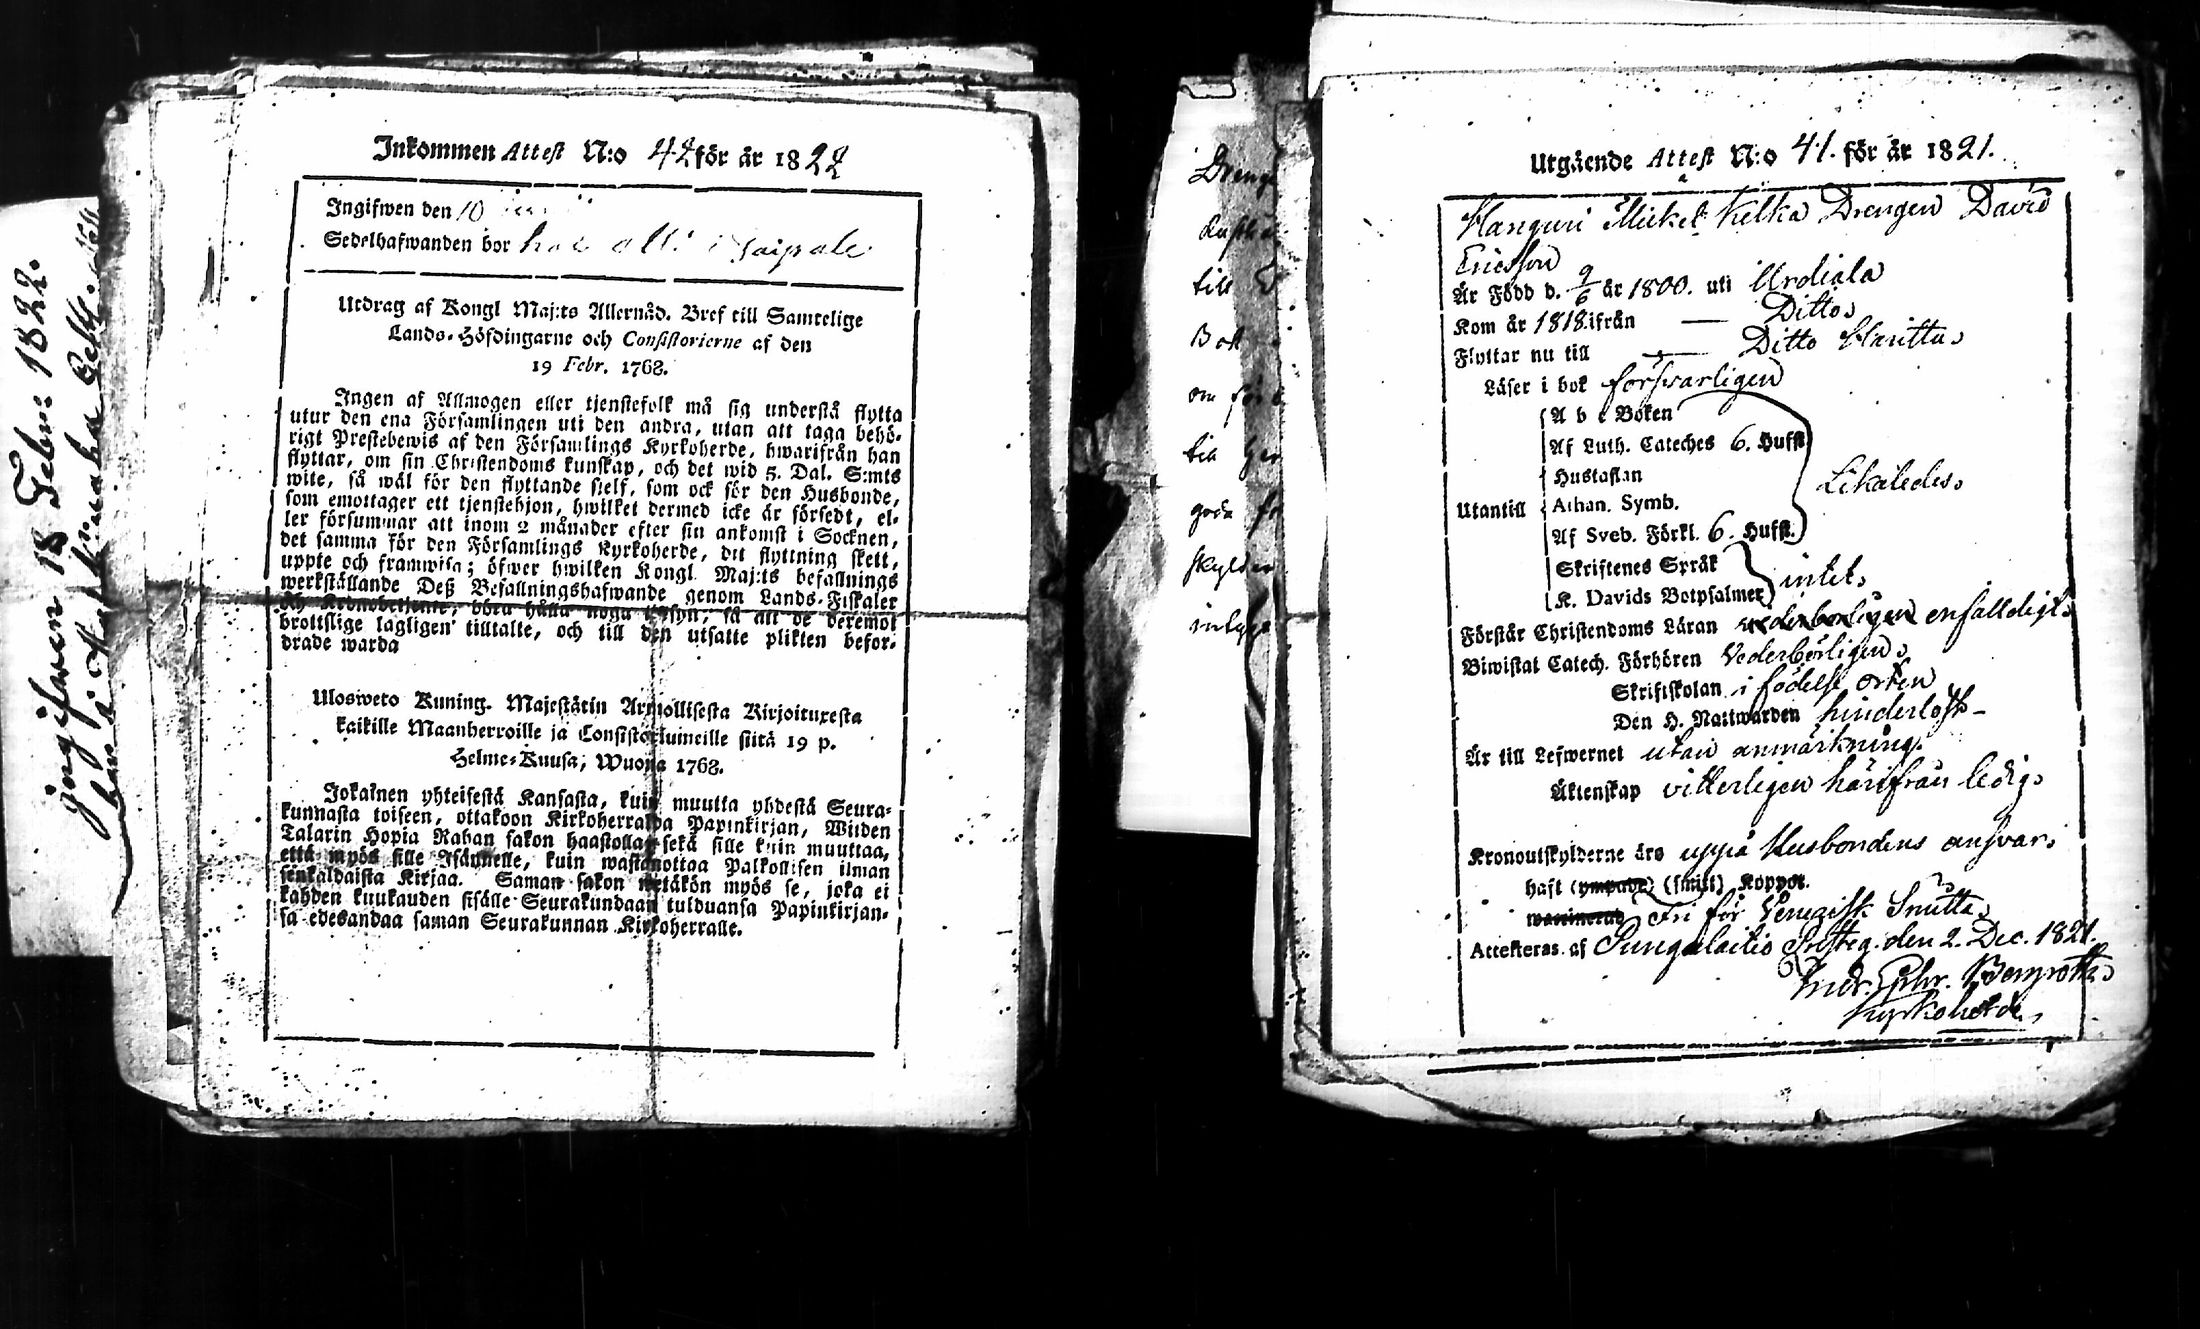 ingifwen 18 Febru 1822.
Inkommen Attest N:o 42 för år 1822
Ingifwen den 10
Sedelhafwanden bor hos i Saipale
Utdrag af Kongl Maj:ts Allernåd. Bref till Samtelige
Lands-Höfdingarne och Consistorierne af den
19 Febr. 1768.
Ingen af Allmogen eller tjenstefolk må sig understå flytta
utur den ena Församlingen uti den andra, utan att taga behö-
rigt Prestebewis af den Församlings Kyrkoherde, hwarifrån han
flyttar, om sin Christendoms kunskap, och det wid 5. Dal. S:mts
wite, så wäl för den flyttande sielf, som ock för den Husbonde,
som emottager ett tjenstehjon, hwilket dermed icke är försedt, el-
ler försummar att inom 2 månader efter sin ankomst i Socknen,
det samma för den Församlings Kyrkoherde, dit flyttning skett,
uppte och framwisa; öfwer hwilken Kongl. Maj:ts befallnings
werkställande Deß Befallningshafwande genom Lands-Fiskaler
och Kronobetjente, böra hålla noga upsyn, så att de deremot
brottslige lagligen tilltalte, och till den utsatte plikten befor-
drade warda
Ulosweto Kuning. Majestätin Armollisesta Kirjoituxesta
kaikille Maanherroille ja Consistoriumeille siitä 19 p.
Helme-Kuusa, Wuona 1768.
Jokainen yhteisestä Kansasta, kuin muutta yhdestä Seura-
kunnasta toiseen, ottakoon Kirkoherralda Papinkirjan, Wiiden
Talarin Hopia Rahan sakon haastolla, sekä sille kuin muuttaa,
että myös sille Isännelle, kuin wastanottaa Palkollisen ilman
senkaldaista Kirjaa. Saman sakon wetäkön myös se, joka ei
kahden kuukauden sisälle Seurakundaan tulduansa Papinkirjan-
sa edesandaa saman Seurakunnan Kirkoherralle.
till
Bok
om för
till
goda
skylder
Utgående Attest N:o 41. för år 1821.
Hanguri Mickel Kelka Drengen David
Ericsson
Är Född d. 9/6 år 1800. uti Urdiala
Kom år 1818 ifrån — Ditto
Flyttar nu till — Ditto Haritta
Läser i bok försvarligen
A b c Boken
Af Luth. Cateches 6. Hufst.
Hustaflan
Utantill Athan. Symb. Likaledes
Af Sveb. Förkl. 6. Hufst.
Skriftenes Språk
K. Davids Botpsalmer intet
Förstår Christendoms Läran vederborligen enfalldigt
Biwistat Catech. Förhören Vederbörligen
Skriftskolan i födelse orten
Den H. Nattwarden hinderlöst
Är till Lefwernet utan anmärkning.
Äktenskap vitterligen härifrån ledig
Kronoutskylderne äro uppå Husbondens ansvar.
haft (ympade) (smitt) Koppor.
waccinerad Fri för Venerisk Smitta
Attesteras af Pungalaitio Presteg. den 2. Dec. 1821.
Kyrkoherde